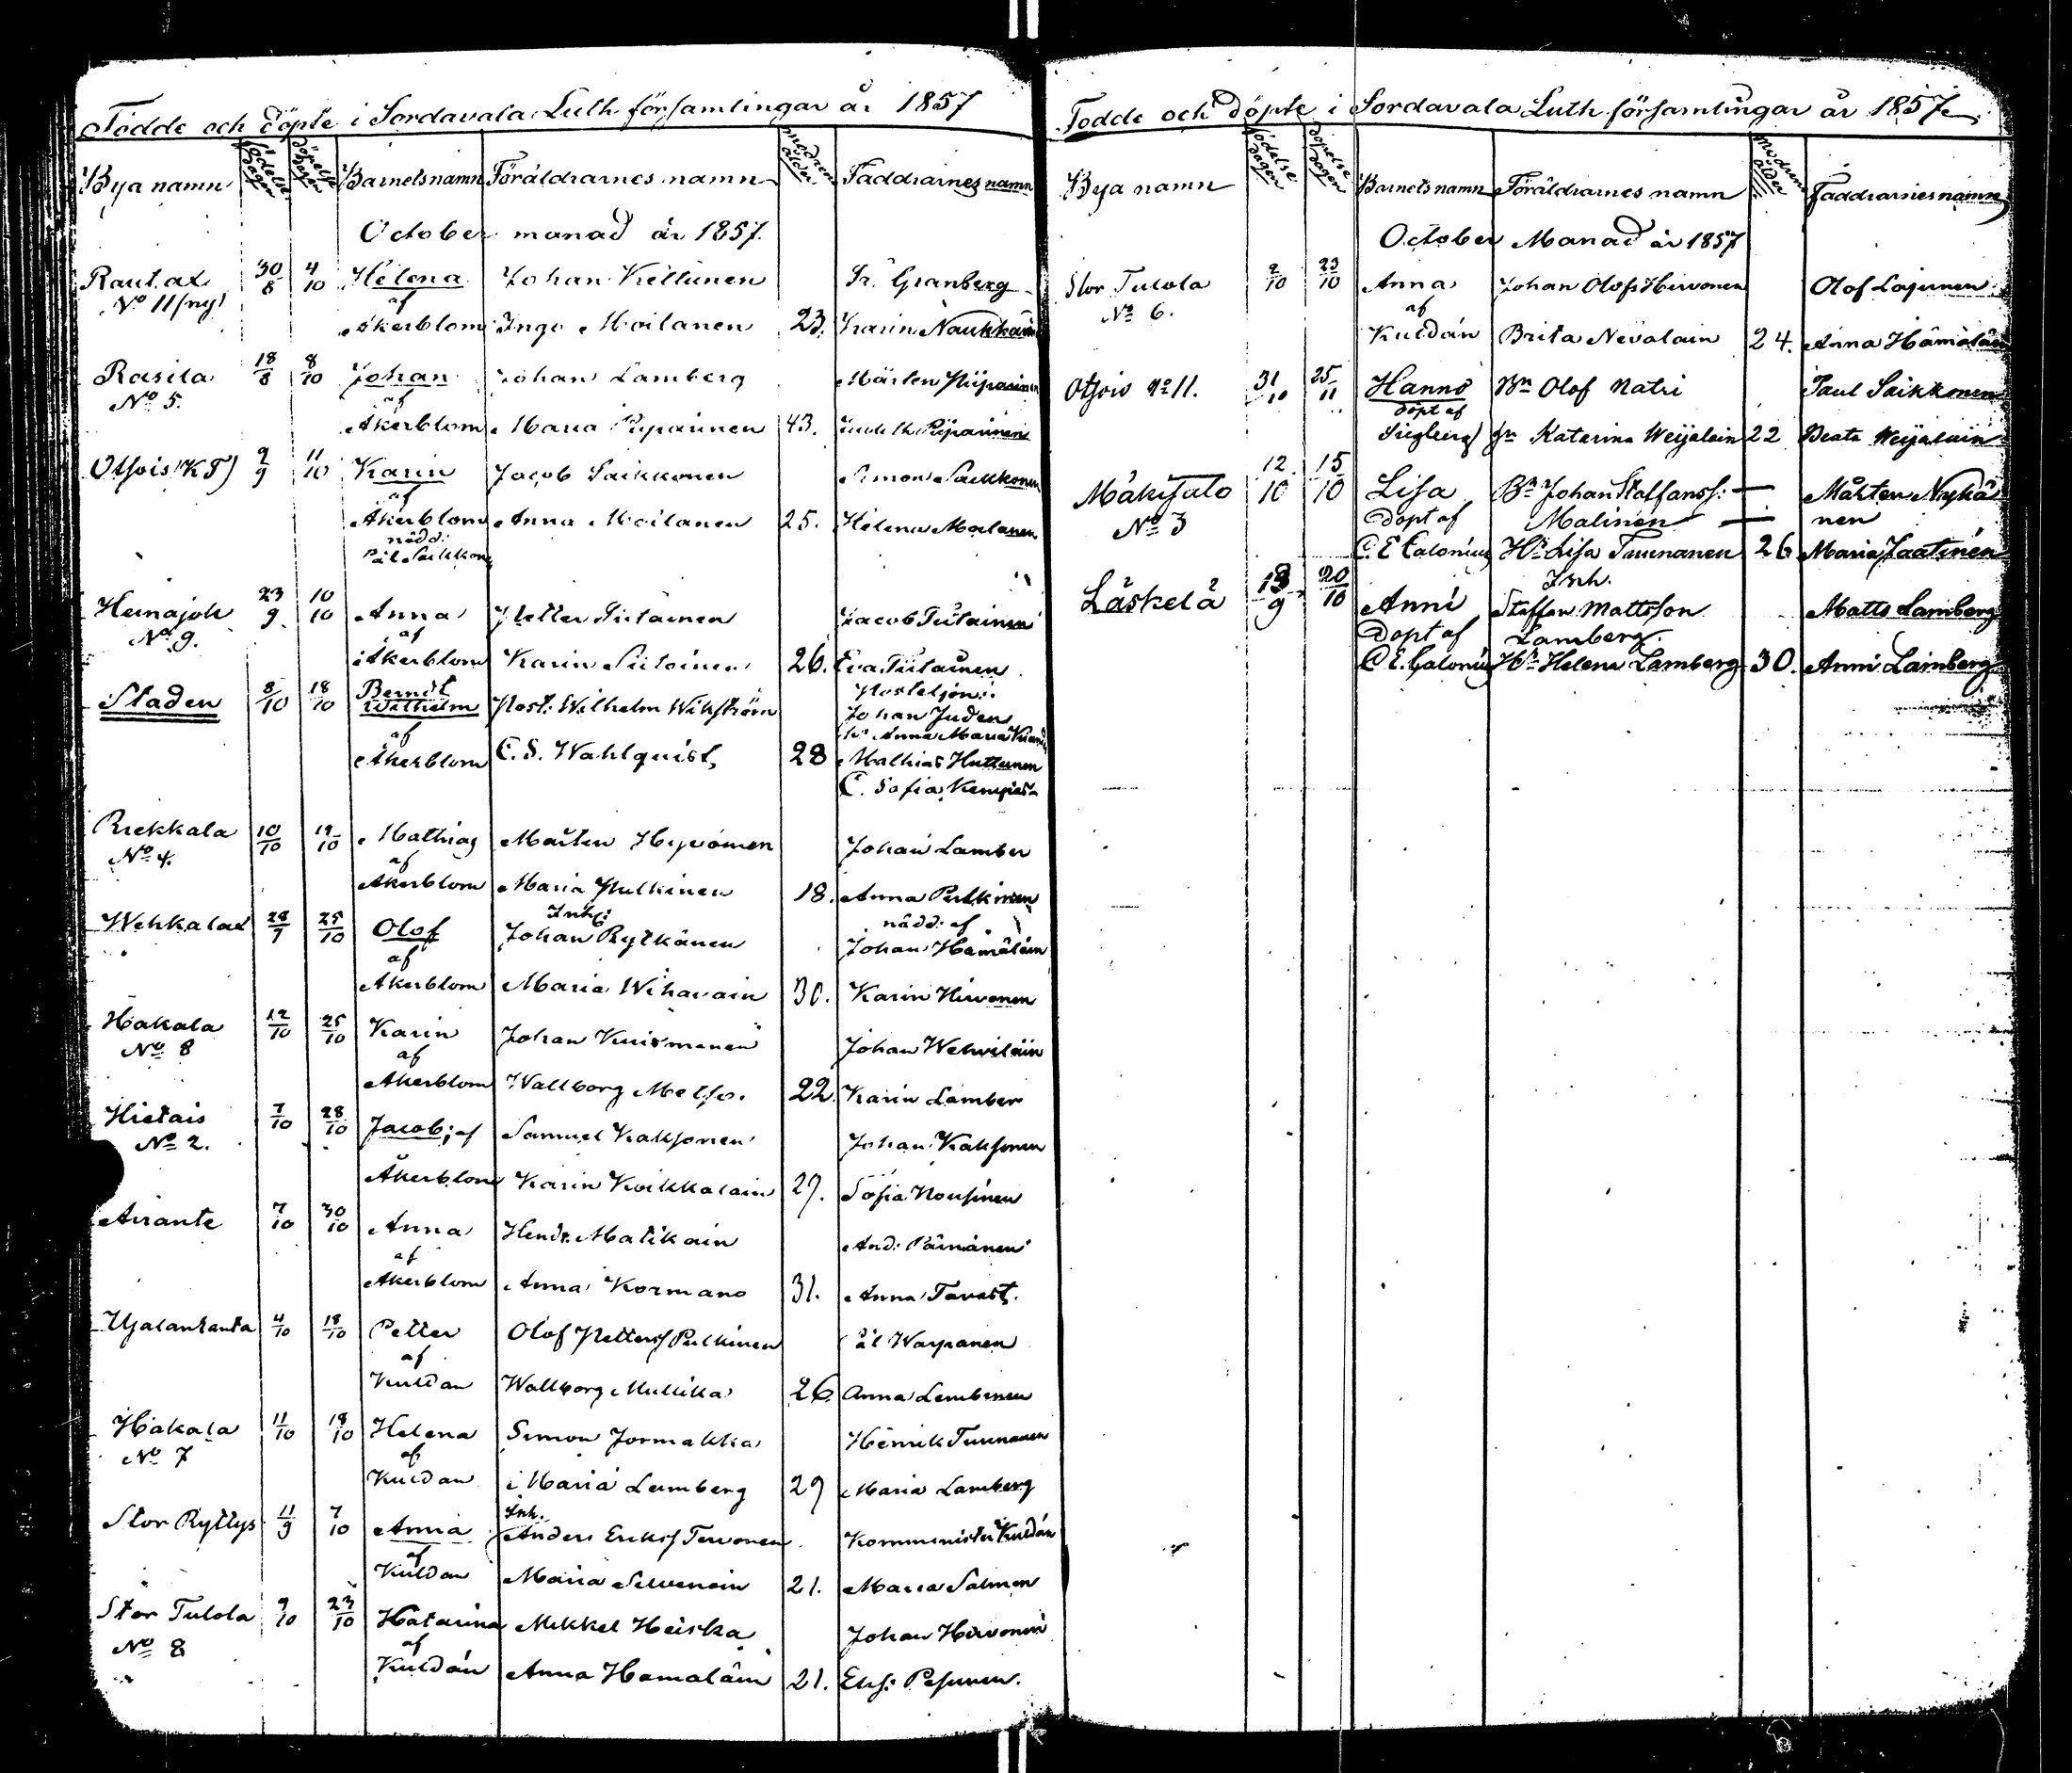 Födde och döpte i Sordavala Luth församlingar år 1857
Bya namn födelse dagen döpelse dagen Barnets namn Föräldrarnes namn modrens ålder Faddrarnes namn
October månad år 1857.
Rautax 30/8 4/10 Helena Johan Kettunen Fr. Granberg
No 11 (ny) af
Åkerblom Inga Moilanen 23. Karin Naukkarin
Rasila 18/8 8/10 Johan Johan Lamberg Mårten Piipainen
No 5. af
Åkerblom Maria Piipainen 43. Judith Piipainen
Otsois (KT) 9/9 11/10 Karin Jacob Saikkonen Simon Saikkonen
af
Åkerblom Anna Moilanen 25. Helena Moilanen
nödd:
Pål Saikkon
Heinajok 23/9 10/10 Anna Petter Tiitainen Jacob Tiitainen
No 9. af
Åkerblom Karin Siitoinen 26. Eva Tiitainen
Staden 8/10 18/10 Berndt Wilhelm Post: Wilhelm Wikström Postiljon:
Johan Juden
af Anna Maria
Åkerblom C. S. Wahlquist, 28 Mathias Huttunen
C. Sofia
Riekkala 10/10 19/10 Mathias Mårten Hyvönen Johan Lamber
No 4. af
Åkerblom Maria Pulkinen 18. Anna Pulkinen
Wehkalax 28/7 25/10 Olof Inh: Johan Rytkänen nödd: af Johan Hämäläin
af
Åkerblom Maria Wihavain 30. Karin Hirvonen
Hakala 12/10 25/10 Karin Johan Kuismanen Johan Wehviläin
No 8 af
Åkerblom Wallborg Metso. 22. Karin Lamber
Hietais 7/10 28/10 Jacob; af Samuel Kaksonen Johan Kaksonen
No 2.
Åkerblom Karin Koikkalain 27. Sofia Nousinen
Airante 7/10 30/10 Anna Hendr. Matikain And: Päivänen
af
Åkerblom Anna Kormano 31. Anna Tavast.
Ujalanranta 4/10 18/10 Petter Olof Petters Pulkinen Pål Warpanen
af
Kuldan Wallborg Mullikka 26. Anna Lembinen
Hakala 11/10 18/10 Helena Simon Jormakka Henrik Tuunanen
No 7 af
Kuldan Maria Lamberg 29 Maria Lamberg
Stor Ryttys 11/9 7/10 Anna Inh. Anders Eriks Tervonen Komminister Kuldán
af
Kuldan Maria 21. Maria Salmen
Stor Tulola 9/10 23/10 Katarina Mikkel Heiska Johan Hirvonen
No 8 af
Kuldán Anna Hamaläin 21. Elis: Pesunen.
Födde och döpte i Sordavala Luth församlingar år 1857
Bya namn födelse dagen döpelse dagen Barnets namn Föräldrarnes namn modrens ålder Faddrarnes namn
October Månad år 1857
Stor Tulola 2/10 23/10 Anna Johan Olofs Hirvonen Olof Lajunen
No 6. af
Kuldán Brita Nevalain 24. Anna Hämäläin
Otsois No 11. 31/10 25/11 Hanno Bn Olof Natri Paul Saikkonen
döpt af
Siegberg hu Katerina Weijalain 22 Beata Weijalain
Mäkisalo 12/10 15/10 Lisa Bn Johan Staffanss: Mårten Nykä
No 3 döpt af Malinen nen
C. E. Calonius Hu Lisa Tuunanen 26 Maria Jaatinen
Läskelä 13/9 20/10 Anni Inh. Staffan Mattsson Matts Lamberg
döpt af Lamberg.
C. E. Calonius Hu Helena Lamberg 30. Anni Lamberg